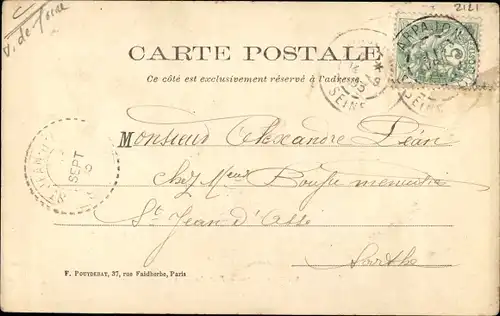 2121
V. de Foire
CARTE POSTALE
Ce côté est exclusivement réservé à l'adresse
ARPAJON
SEINE
5
SEPT
Monsieur Alexandre Péan
chez Meur Boufu menuisier
St Jean d'Asse
Sarthe
F. POUYDEBAT, 37, rue Faidherbe, Paris